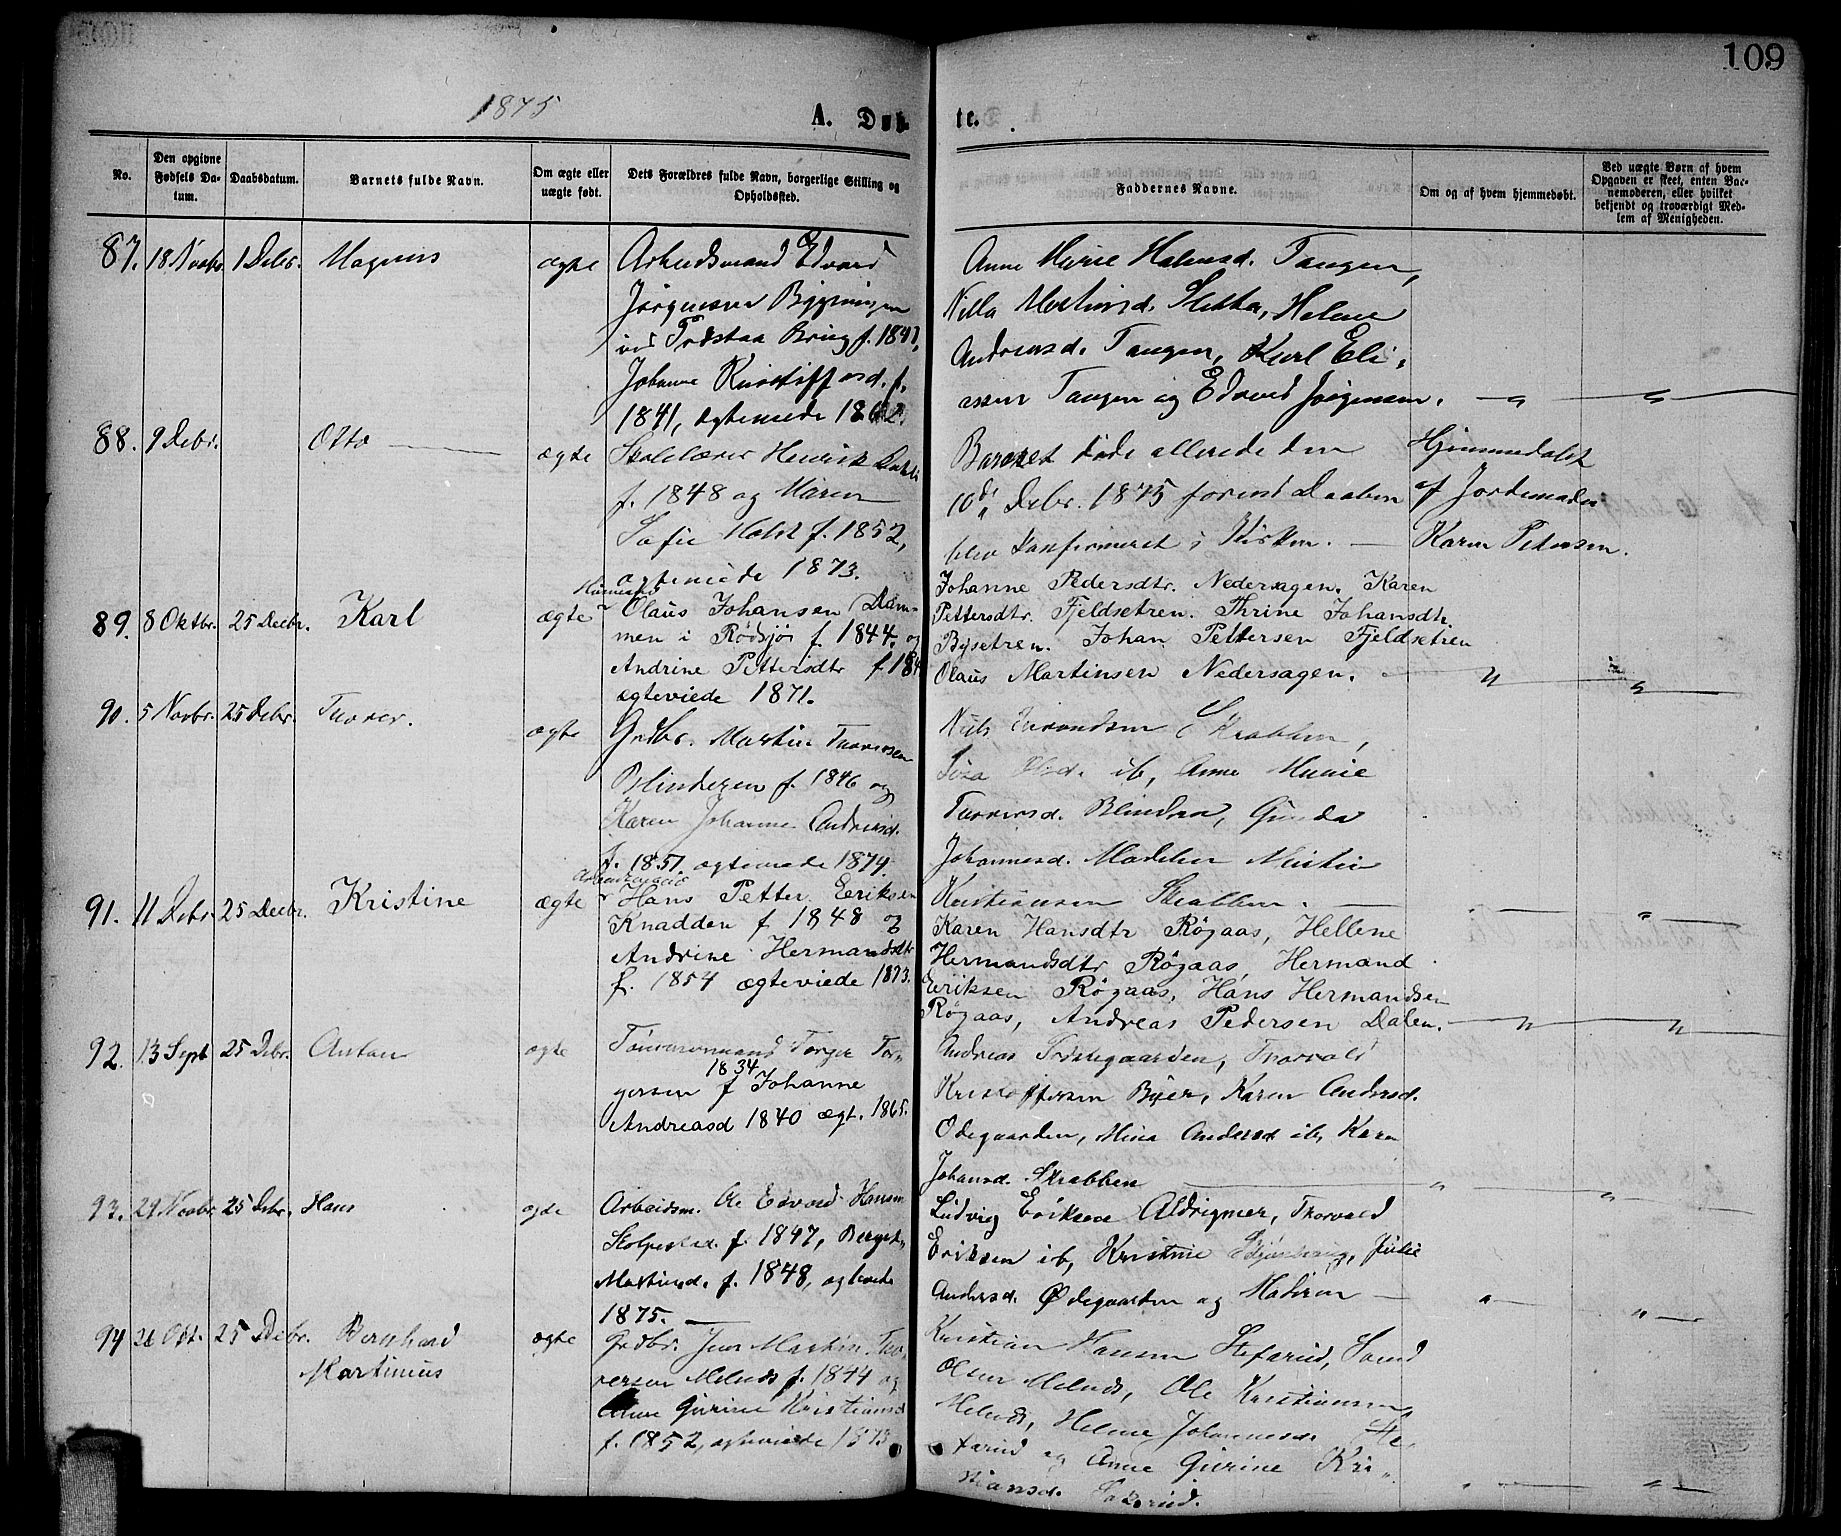 109
1875
A. Døbte.
No.
Den opgivne Fødsels Datum.
Daabsdatum.
Barnets fulde Navn.
Om ægte eller uægte født.
Dets Forældres fulde Navn, borgerlige Stilling og Opholdssted.
Faddernes Navne.
Om og af hvem hjemmedøbt.
Ved uægte Børn af hvem Opgaven er skeet, enten Barnemoderen, eller hvilket bekjendt og troværdigt Medlem af Menigheden.
87. 18 Novbr. 1 Debr. Magnus ægte
Arbeidsmand Edvard
Jørgensen Bygningen
ved Brug f. 1841,
Johanne Kristoffersd. f.
1841, ægteviede 1862.
Anne Marie Halvorsd. Tangen,
Martinsd. Sletta, Helene
Andreasd. Tangen, Karl Eli-
assen Tangen og Edvard Jørgensen. — " — " —
88. 9 Debr. Otto — ægte
Skolelærer Henrik
f. 1848 og Maren
Sofie Holst f. 1852,
ægteviede 1873.
Barnet døde allerede den
10de Debr. 1875 forend Daaben
blev konfirmeret i Kirken. —
Hjemmedøbt
af Jordemoder
Karen Petersen.
89. 8 Oktbr. 25 Decbr. Karl ægte
Husmand
Olaus Johansen Dam-
men i Rödsjø f. 1844. og
Andrine Pettersdtr f. 184
ægteviede 1871.
Johanne Pedersdtr. Nedersagen. Karen
Pettersdtr. Fjeldsetren. Thrine Johansdtr.
Bysetren. Johan Pettersen Fjeldsetren
Olaus Martinsen Nedersagen. — " — " —
90. 5 Novbr. 25 Debr. Thorer. ægte
Grdbr. Martin Thorersen
Blinderen f. 1846 og
Karen Johanne Andreasd.
f. 1851 ægteviede 1874.
Niels Skrabben,
Olsd. ib, Anne Marie
Thorersd. Blindern, Gunda
Johannesd. Madelen Martin
Kristiansen Skrabben. — " — " —
91. 11 Debr. 25 Decbr. Kristine ægte
Arbeidsmand
Hans Petter Eeriksen
Knadden f 1848 og
Andrine Hermandsdtr
f. 1854 ægteviede 1873.
Karen Hansdtr Røgaas, Hellene
Hermandsdtr Røgaas, Hermand
Eeriksen Røgaas, Hans Hermandsen
Røgaas, Andreas Pedersen Dalen. — " — " —
92. 13 Sept 25 Debr. Anton ægte
Tømmermand Torger Tor-
gersen f 1834 Johanne
Andreasd 1840 ægt. 1865.
Andreas Thorvald
Kristoffersen Byer, Karen Andersd.
Odegaarden, Mina Andersd ib, Karen
Johansd. Skrabben — " — " —
93. 29 Novbr. 25 Debr. Hans ægte
Arbeidsm. Ole Edvard Hansen
f. 1847, Berget
Martinsd. f. 1848, ægteviede
1875. —
Ludvig Eriksen Aldrigmer, Thorvald
Eriksen ib, Kristine Julie
Andersd. Ødegaarden og Moderen — " — " —
94 26 Okt. 25 Debr. Bernhard
Martinius ægte
Grdbr. Jens Martin Tho-
versen Melnds f. 1844 og
Anne Gurine Kristiansd
f. 1852, ægteviede 1873
Kristian Hansen
Olsen Melnds, Ole Kristiansen
Melnds, Helene Johannesd.
og Anne Gurine Kri-
stiansd. — " — " —